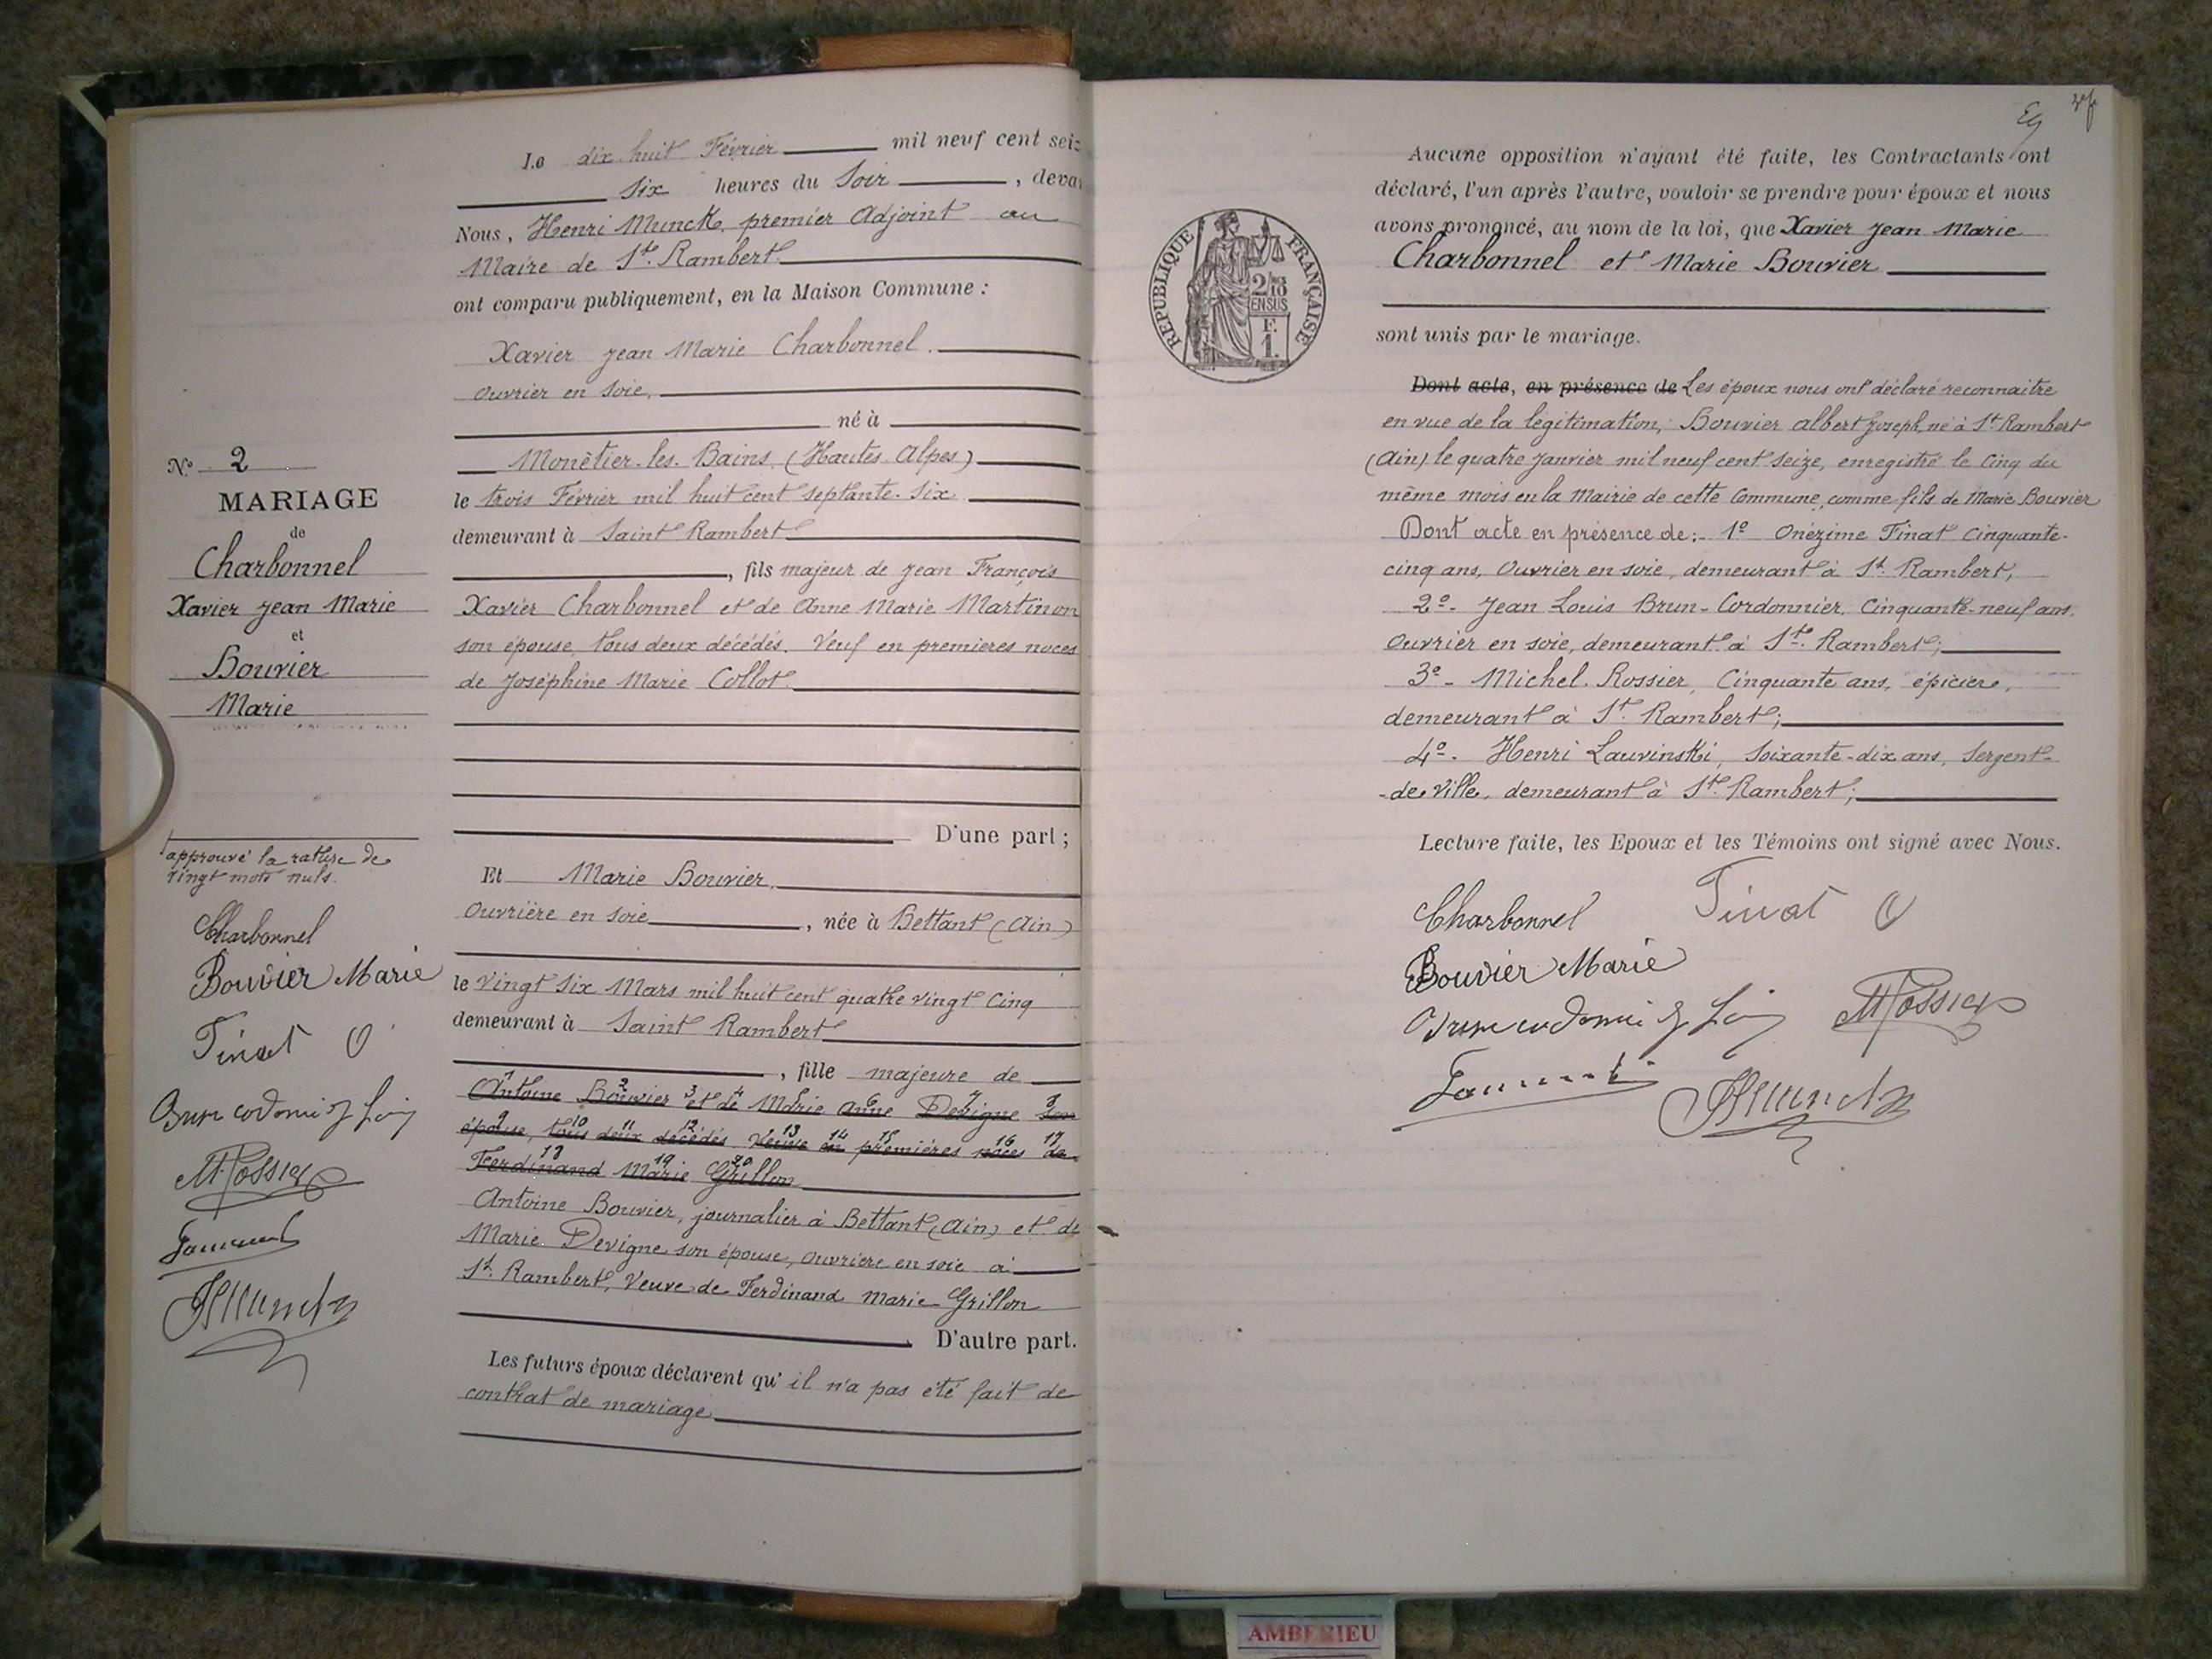 Le dix huit Février mil neuf cent seiz
Six heures du Soir, devan
Nous, Henri Munck, premier Adjoint au
Maire de St. Rambert
ont comparu publiquement, en la Maison Commune :
Xavier Jean Marie Charbonnel.
Ouvrier en Soie,
né à
Monêtier-les-Bains (Hautes Alpes)
le trois Février mil huit cent septante-six
demeurant à Saint Rambert
, fils majeur de Jean François
Xavier Charbonnel et de Anne Marie Martinon
son épouse, tous deux décédés. Veuf en premieres noces
de Joséphine Marie Collot
D'une part ;
Et Marie Bouvier,
Ouvrière en Soie, née à Bettant (Ain)
le Vingt Six Mars mil huit cent quatre vingt Cinq
demeurant à Saint Rambert
, fille majeure de
Antoine Bouvier et de Marie Anne Devigne Son
épouse, tous deux décédés Veuve en premières noces de
Ferdinand Marie Grillon
1 2 3 4 5 6 7 8
9 10 11 12 13 14 15 16 17
18 19 20
Antoine Bouvier, journalier à Bettant (Ain) et de
Marie Devigne son épouse, ouvrière en soie à
St. Rambert, Veuve de Ferdinand Marie Grillon
D'autre part.
Les futurs époux déclarent qu'il n'a pas été fait de
contrat de mariage
No 2
MARIAGE
de
Charbonnel
Xavier Jean Marie
et
Bouvier
Marie
approuvé la rature de
vingt mots nuls.
Charbonnel
Bouvier Marie
Tinat O
M Rossier
HMunck
Aucune opposition n'ayant été faite, les Contractants ont
déclaré, l'un après l'autre, vouloir se prendre pour époux et nous
avons prononcé, au nom de la loi, que Xavier Jean Marie
Charbonnel et Marie Bouvier
sont unis par le mariage.
REPUBLIQUE FRANÇAISE
2/10
EN SUS
F.
1.
Dont acte, en présence de Les époux nous ont déclaré reconnaitre
en vue de la legitimation, Bouvier Albert Joseph, né à St. Rambert
(Ain) le quatre Janvier mil neuf cent seize, enregistré le Cinq du
même mois en la Mairie de cette Commune, comme fils de Marie Bouvier
Dont acte en présence de :- 1o Onézime Tinat Cinquante-
cinq ans, Ouvrier en soie, demeurant à St. Rambert,
2o- Jean Louis Brun-Cordonnier, Cinquante-neuf ans,
Ouvrier en soie, demeurant à St. Rambert ;
3o- Michel Rossier, Cinquante ans, épicier,
demeurant à St. Rambert ;
4o- Henri Lauvinski, Soixante-dix ans, Sergent-
-de-Ville, demeurant à St. Rambert ;
Lecture faite, les Epoux et les Témoins ont signé avec Nous.
Charbonnel Tinat O
Bouvier Marie
M Rossier
HMunck
AMBERIEU